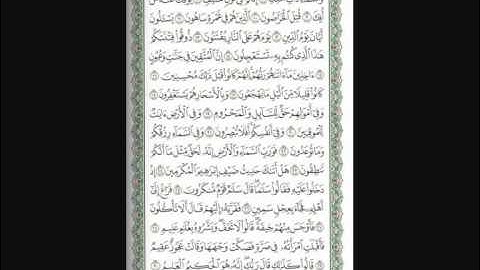 أُفِكَ ۝٩ قُتِلَ ٱلْخَرَّٰصُونَ ۝١٠ ٱلَّذِينَ هُمْ فِى غَمْرَةٍ سَاهُونَ ۝١١ يَسْـَٔلُونَ
أَيَّانَ يَوْمُ ٱلدِّينِ ۝١٢ يَوْمَ هُمْ عَلَى ٱلنَّارِ يُفْتَنُونَ ۝١٣ ذُوقُوا۟ فِتْنَتَكُمْ
هَٰذَا ٱلَّذِى كُنتُم بِهِۦ تَسْتَعْجِلُونَ ۝١٤ إِنَّ ٱلْمُتَّقِينَ فِى جَنَّٰتٍ وَعُيُونٍ
۝١٥ ءَاخِذِينَ مَآ ءَاتَىٰهُمْ رَبُّهُمْ إِنَّهُمْ كَانُوا۟ قَبْلَ ذَٰلِكَ مُحْسِنِينَ ۝١٦
كَانُوا۟ قَلِيلًا مِّنَ ٱلَّيْلِ مَا يَهْجَعُونَ ۝١٧ وَبِٱلْأَسْحَارِ هُمْ يَسْتَغْفِرُونَ ۝١٨
وَفِىٓ أَمْوَٰلِهِمْ حَقٌّ لِّلسَّآئِلِ وَٱلْمَحْرُومِ ۝١٩ وَفِى ٱلْأَرْضِ ءَايَٰتٌ
لِّلْمُوقِنِينَ ۝٢٠ وَفِىٓ أَنفُسِكُمْ أَفَلَا تُبْصِرُونَ ۝٢١ وَفِى ٱلسَّمَآءِ رِزْقُكُمْ
وَمَا تُوعَدُونَ ۝٢٢ فَوَرَبِّ ٱلسَّمَآءِ وَٱلْأَرْضِ إِنَّهُۥ لَحَقٌّ مِّثْلَ مَآ أَنَّكُمْ
تَنطِقُونَ ۝٢٣ هَلْ أَتَىٰكَ حَدِيثُ ضَيْفِ إِبْرَٰهِيمَ ٱلْمُكْرَمِينَ ۝٢٤ إِذْ
دَخَلُوا۟ عَلَيْهِ فَقَالُوا۟ سَلَٰمًا قَالَ سَلَٰمٌ قَوْمٌ مُّنكَرُونَ ۝٢٥ فَرَاغَ إِلَىٰٓ
أَهْلِهِۦ فَجَآءَ بِعِجْلٍ سَمِينٍ ۝٢٦ فَقَرَّبَهُۥٓ إِلَيْهِمْ قَالَ أَلَا تَأْكُلُونَ
۝٢٧ فَأَوْجَسَ مِنْهُمْ خِيفَةً قَالُوا۟ لَا تَخَفْ وَبَشَّرُوهُ بِغُلَٰمٍ عَلِيمٍ
۝٢٨ فَأَقْبَلَتِ ٱمْرَأَتُهُۥ فِى صَرَّةٍ فَصَكَّتْ وَجْهَهَا وَقَالَتْ عَجُوزٌ عَقِيمٌ
۝٢٩ قَالُوا۟ كَذَٰلِكِ قَالَ رَبُّكِ إِنَّهُۥ هُوَ ٱلْحَكِيمُ ٱلْعَلِيمُ ۝٣٠